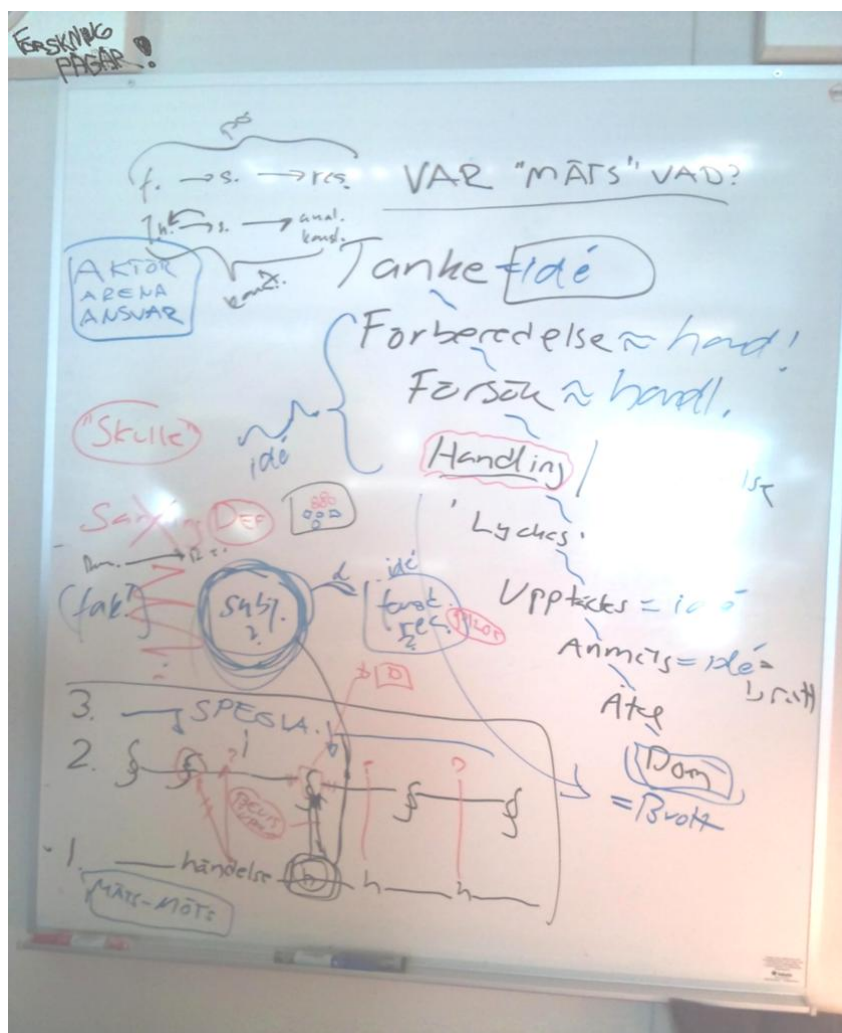 FORSKNING
PÅGÅR!
f. → s. → res.
h. → s. → anal.
konst.
VAR "MÄTS" VAD?
AKTÖR
ARENA
ANSVAR
Tanke = idé
Förberedelse ≈ hand!
Försök ≈ handl.
"Skulle"
idé
Handling
Lyckas
DEF
(fak.)
subj.
?
idé
Upptäcks = idé
Anmäls = idé
brott
Åtal
Dom
= Brott
3. SPEGLA.
2. § § § § §
1. händelse h h h
MÄTS-MÖTS